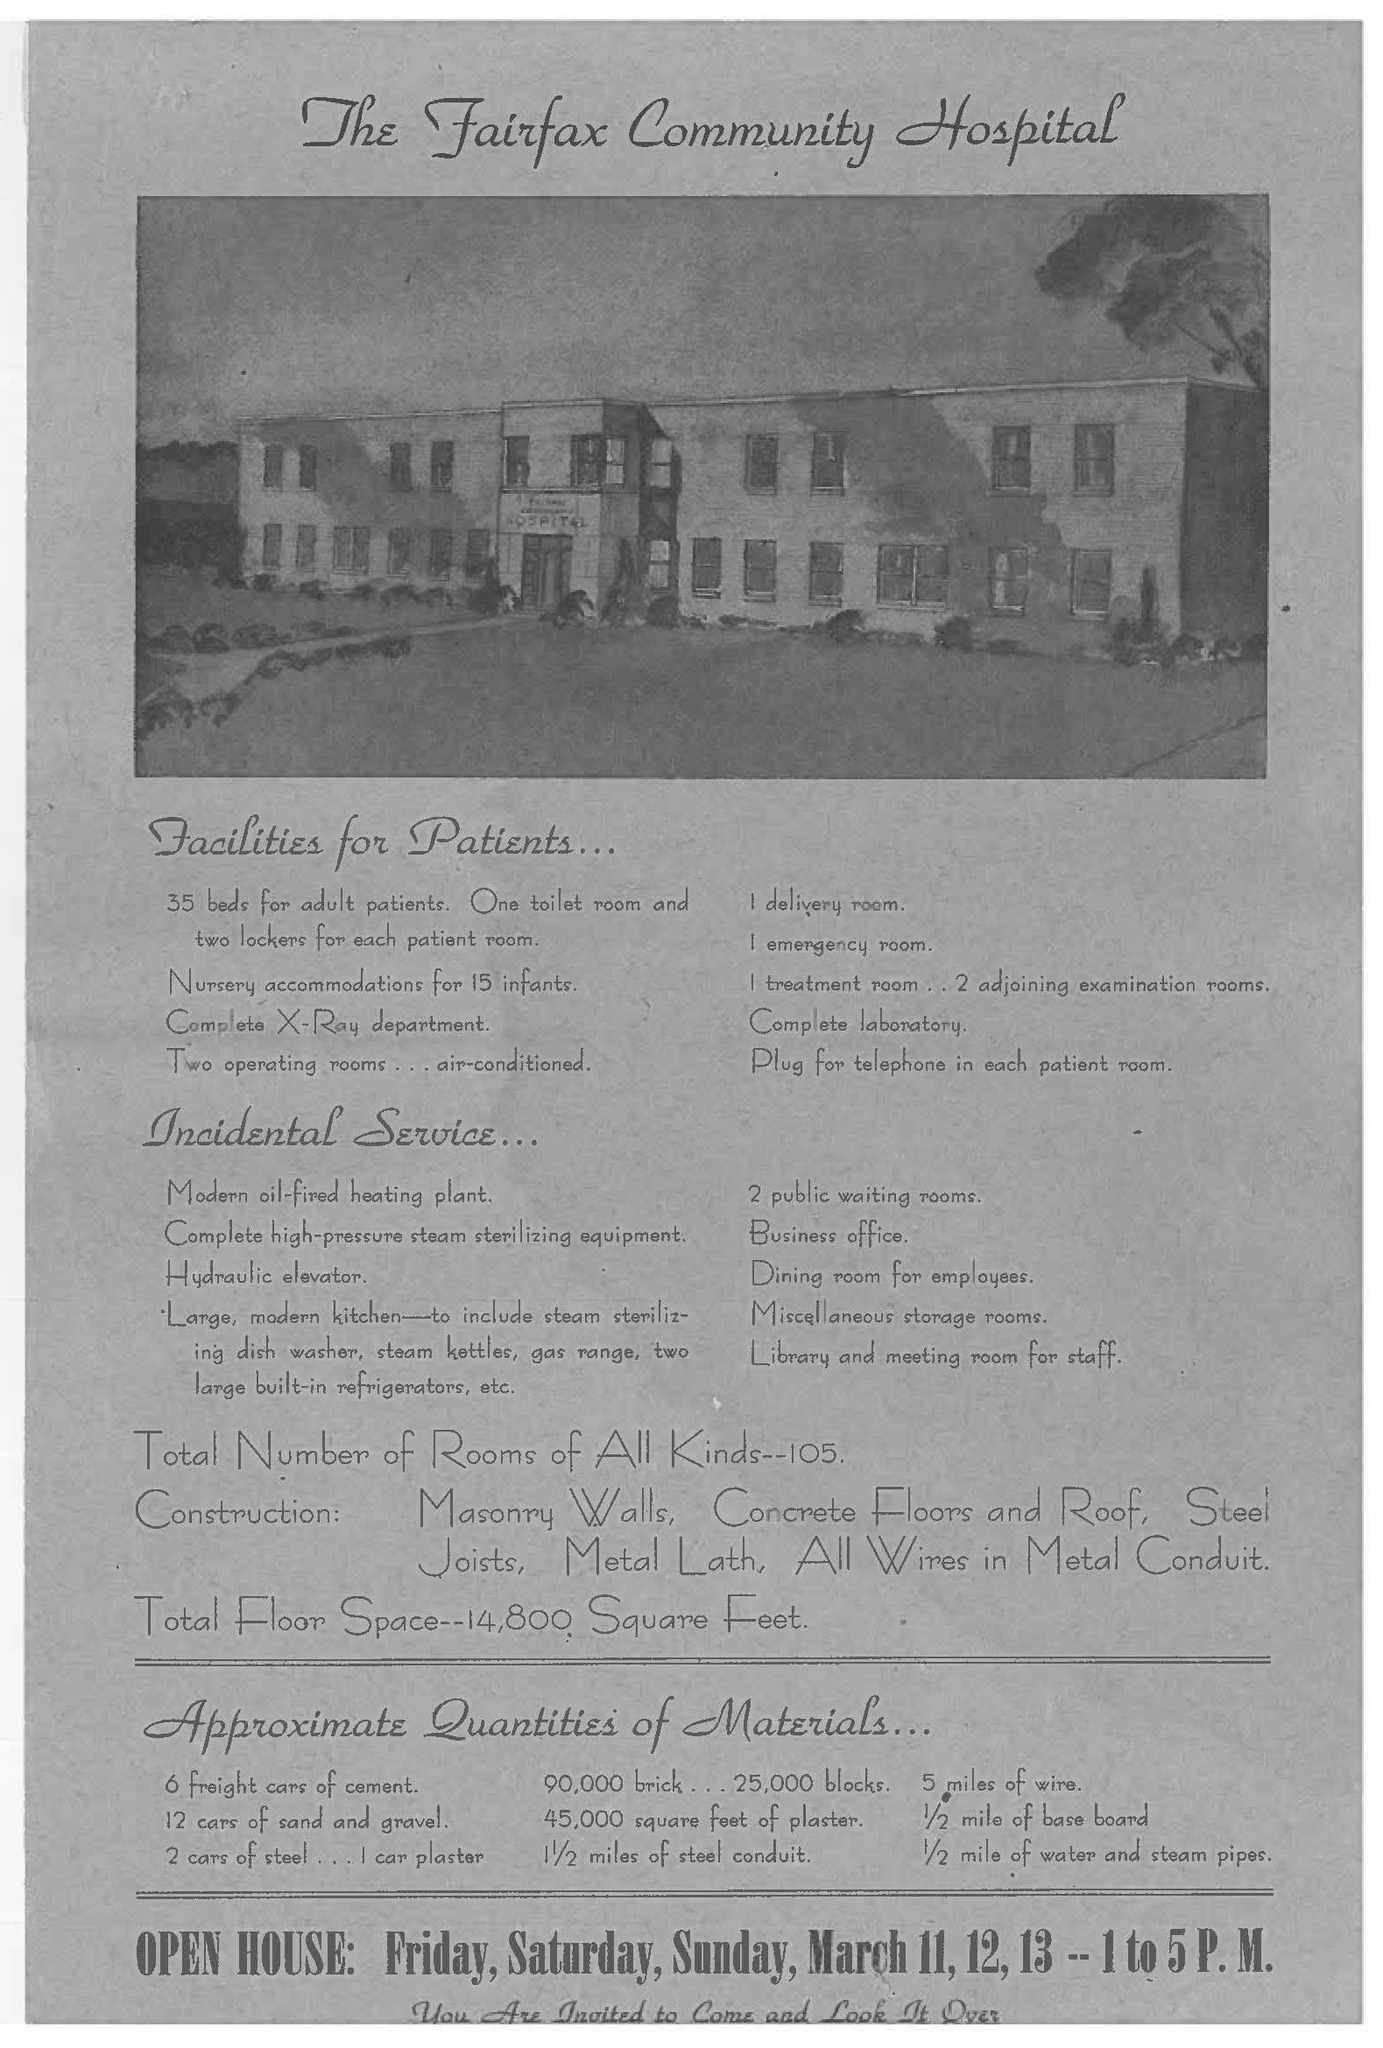 The Fairfax Community Hospital
HOSPITAL
Facilities for Patients...
35 beds for adult patients. One toilet room and
two lockers for each patient room.
Nursery accommodations for 15 infants.
Complete X-Ray department.
Two operating rooms . . . air-conditioned.
1 delivery room.
1 emergency room.
1 treatment room . . 2 adjoining examination rooms.
Complete laboratory.
Plug for telephone in each patient room.
Incidental Service...
Modern oil-fired heating plant.
Complete high-pressure steam sterilizing equipment.
Hydraulic elevator.
Large, modern kitchen—to include steam steriliz-
ing dish washer, steam kettles, gas range, two
large built-in refrigerators, etc.
2 public waiting rooms.
Business office.
Dining room for employees.
Miscellaneous storage rooms.
Library and meeting room for staff.
Total Number of Rooms of All Kinds--105.
Construction: Masonry Walls, Concrete Floors and Roof, Steel
Joists, Metal Lath, All Wires in Metal Conduit.
Total Floor Space--14,800 Square Feet.
Approximate Quantities of Materials...
6 freight cars of cement.
12 cars of sand and gravel.
2 cars of steel . . . 1 car plaster
90,000 brick . . . 25,000 blocks.
45,000 square feet of plaster.
1½ miles of steel conduit.
5 miles of wire.
½ mile of base board
½ mile of water and steam pipes.
OPEN HOUSE: Friday, Saturday, Sunday, March 11, 12, 13 -- 1 to 5 P. M.
You Are Invited to Come and Look It Over